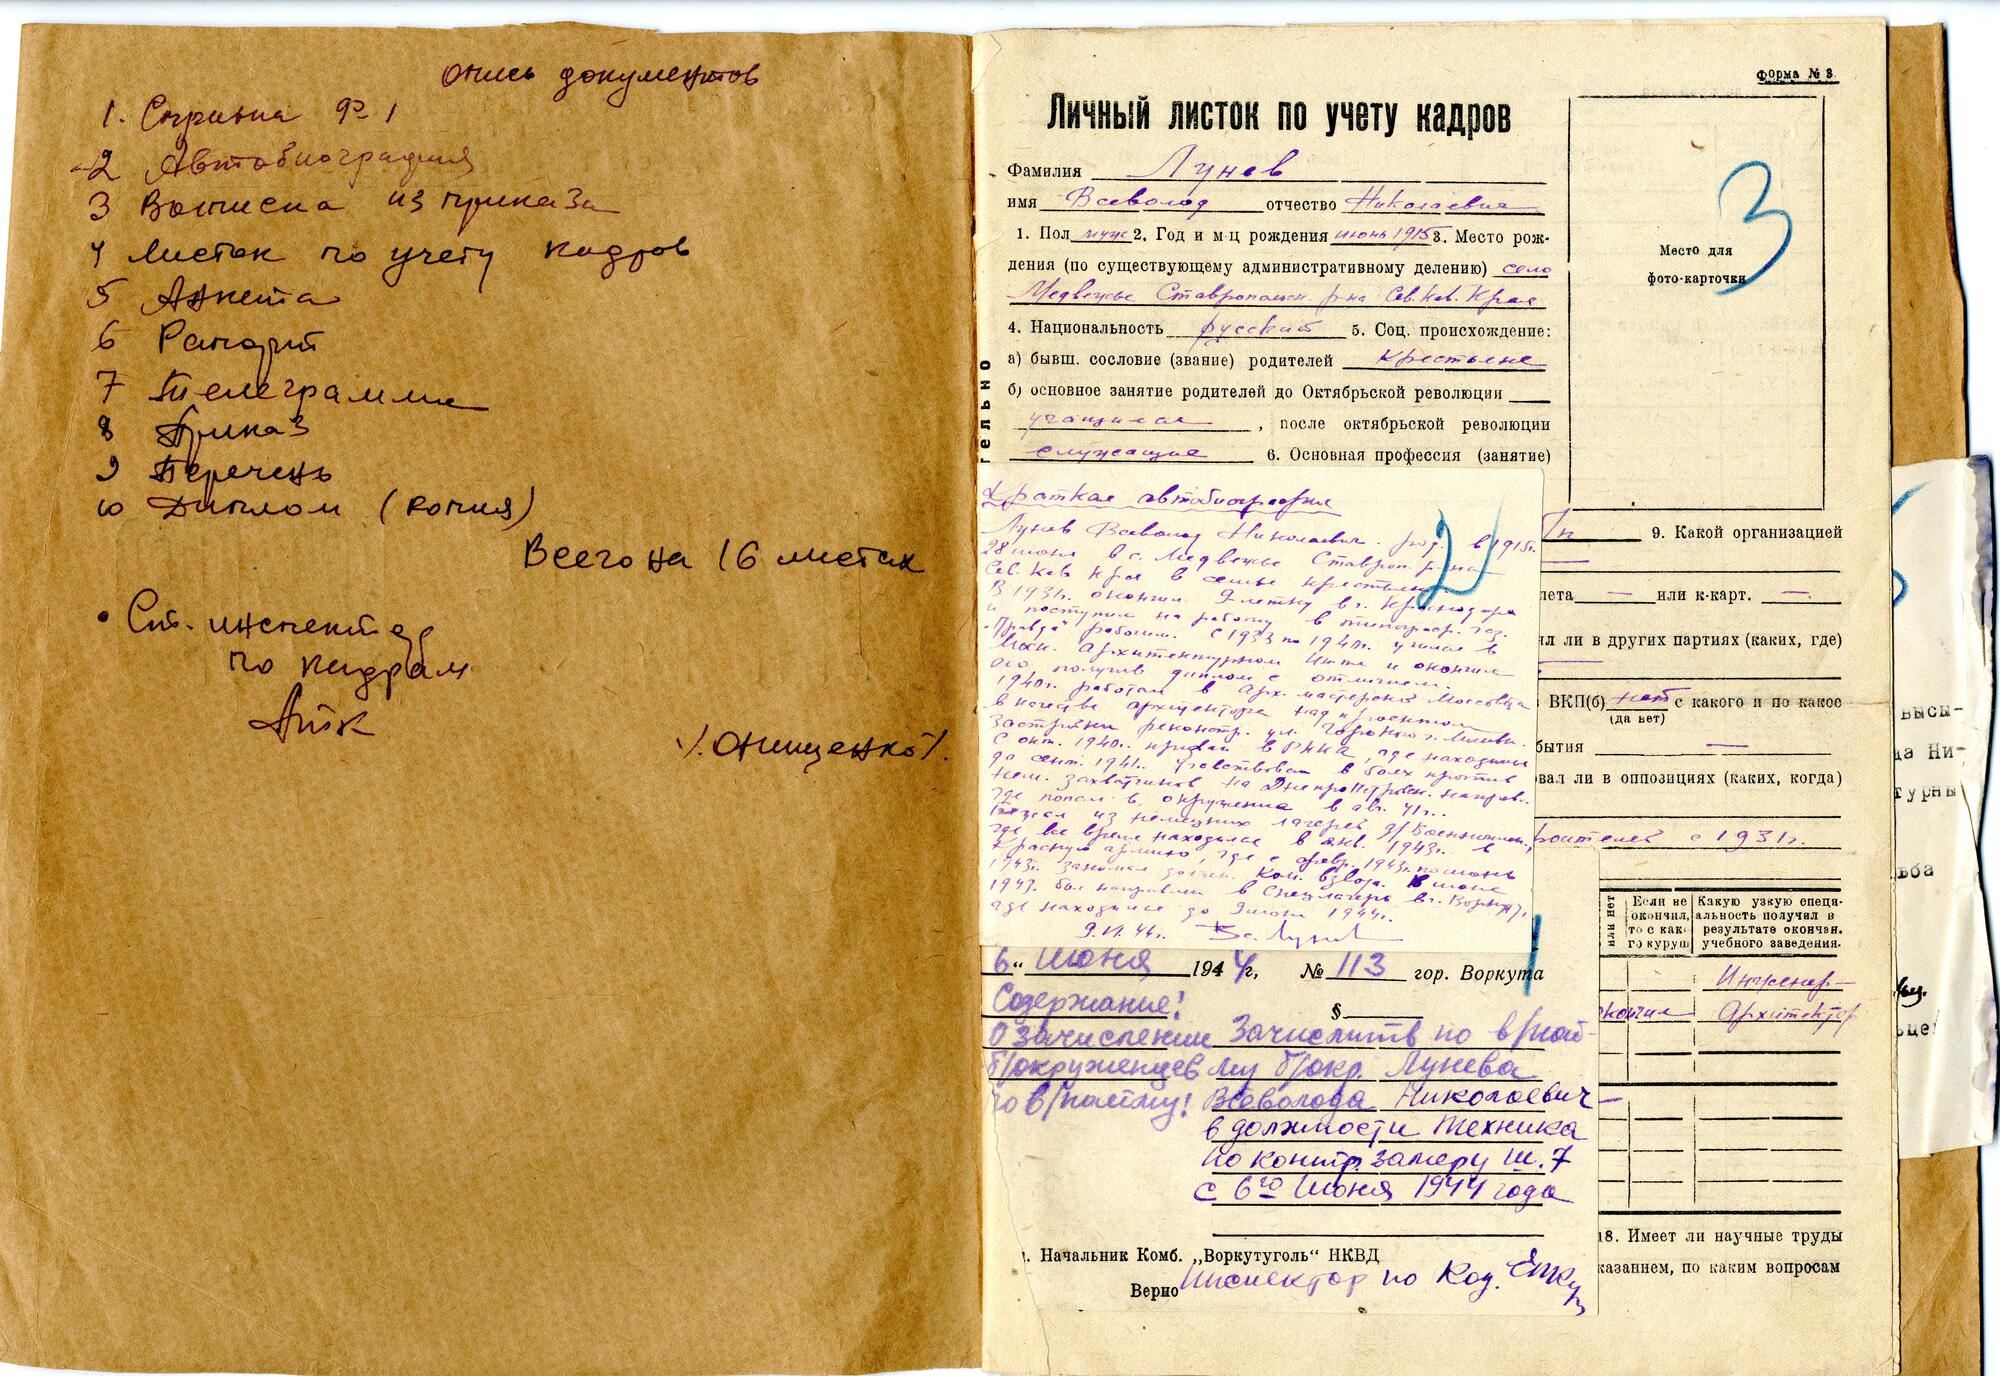 Опись документов
1. Справка ф 1
2 Автобиография
3 Выписка из приказа
4 Листок по учету кадров
5 Анкета
6 Рапорт
7 Телеграмма
8 Приказ
9 Перечень
10 Диплом (копия)
Всего на 16 листах
Ст. инспектор
по кадрам
/. Онищенко /.
Форма № 3.
Личный листок по учету кадров
Фамилия Лунев
имя Всеволод отчество Николаевич
1. Пол муж 2. Год и м-ц рождения июнь 1915 3. Место рож-
дения (по существующему административному делению) село
Медвежье Ставропольск. р-на Сев. Кав. Края
4. Национальность русский 5. Соц. происхождение:
а) бывш. сословие (звание) родителей крестьяне
б) основное занятие родителей до Октябрьской революции
учащиеся, после октябрьской революции
служащие 6. Основная профессия (занятие)
тельно
Место для
фото-карточки
3
Краткая автобиография
2
Лунев Всеволод Николаевич. род. в 1915г.
28 июня в с. Медвежье Ставроп. р-на
Сев. Кав Края в семье крестьян.
В 1931г. окончил 9-летку в г. Краснодаре
и поступил на работу в типограф. газ.
"Правда" рабочим. С 1933 по 1940г. учился в
Моск. Архитектурном Инт-те и окончил
его, получив диплом с отличием.
1940г. работал в Арх. мастерской Моссовета
в качестве архитектора над проектом
застройки реконстр. ул. Горького г. Москвы.
С окт. 1940г. призван в РККА, где находился
до сент. 1941г. Участвовал в боях против
нем. захватчиков на Днепропетровск. направ.
где попал в окружение в авг. 41г.
из немецких лагерей д/военнопл.,
где все время находился в янв. 1943г. в
Красную армию, где с февр. 1943г. по июнь
1943г. занимал должн. Ком. взвода. В июне
1943г. был направлен в Спецлагерь в г. Воркуту,
где находился до 9 июня 1944г.
9.VI.44г. Вс. Лунев
9. Какой организацией
лета — или к-карт. —
ял ли в других партиях (каких, где)
ВКП(б) нет с какого и по какое
(да нет)
бытия —
вал ли в оппозициях (каких, когда)
роителей с 1931г.
или нет
Если не окончил, то с как- го курущ
Какую узкую специ- альность получил в результате окончан. учебного заведения.
окончил
Инженер-
Архитектор
18. Имеет ли научные труды
казанием, по каким вопросам
6" Июня 1944г, № 113 гор. Воркута
1
Содержание! §
О зачислении Зачислить по в/най-
б/окруженцев му б/окр. Лунева
по в/найму! Всеволода Николаевич-
в должности Техника
по контр. замеру ш. 7
с 6го Июня 1944 года
. Начальник Комб. „Воркутуголь" НКВД
Верно Инспектор по Кад.
высы-
да Ни-
турны
ьба
ьцен